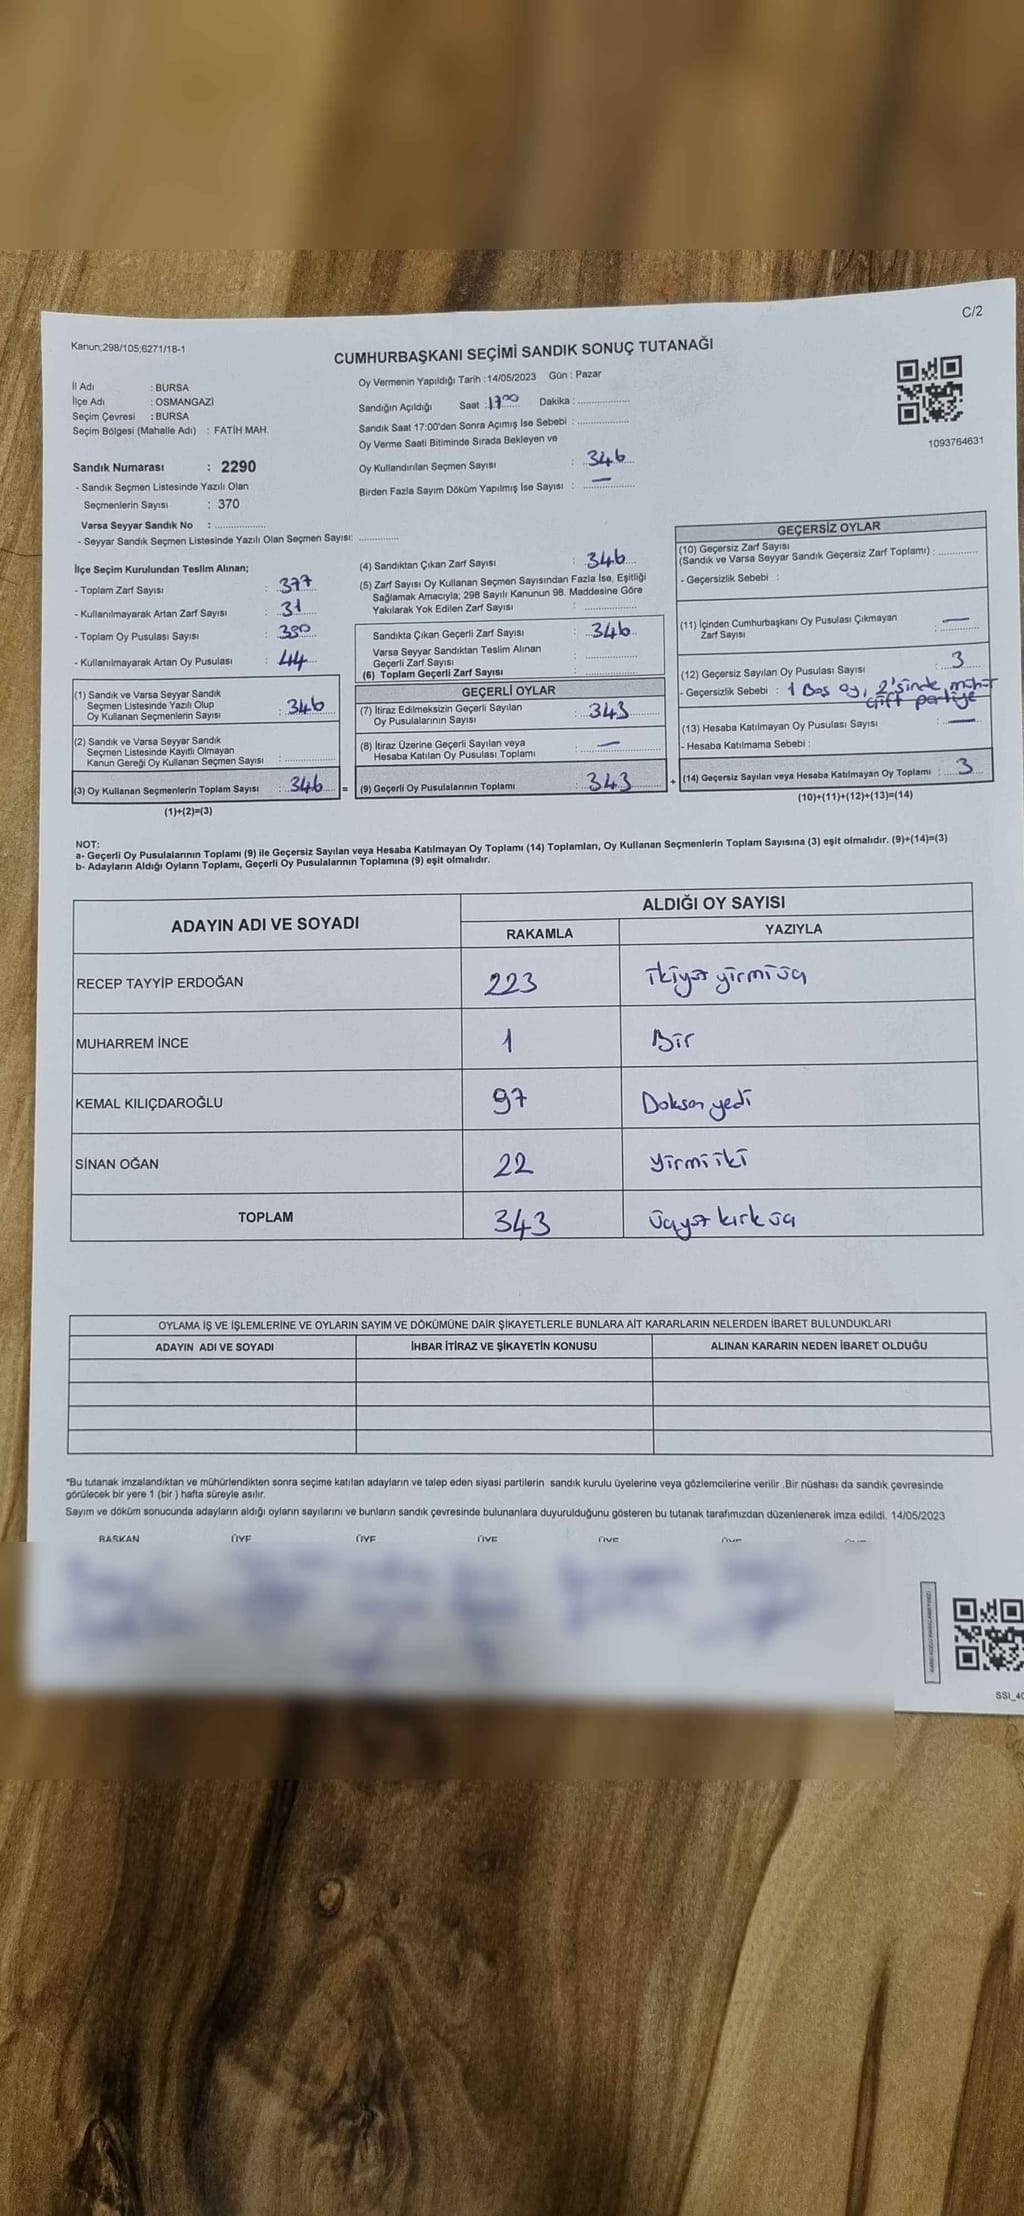 C/2
Kanun;298/105;6271/18-1
CUMHURBAŞKANI SEÇİMİ SANDIK SONUÇ TUTANAĞI
İl Adı : BURSA
İlçe Adı : OSMANGAZİ
Seçim Çevresi : BURSA
Seçim Bölgesi (Mahalle Adı) : FATİH MAH.
Sandık Numarası : 2290
- Sandık Seçmen Listesinde Yazılı Olan
Seçmenlerin Sayısı : 370
Varsa Seyyar Sandık No : ..................
- Seyyar Sandık Seçmen Listesinde Yazılı Olan Seçmen Sayısı: ..............
Oy Vermenin Yapıldığı Tarih :14/05/2023 Gün : Pazar
Sandığın Açıldığı Saat :17 00 Dakika : ..................
Sandık Saat 17:00'den Sonra Açımış İse Sebebi : ..................
Oy Verme Saati Bitiminde Sırada Bekleyen ve
Oy Kullandırılan Seçmen Sayısı : 346
Birden Fazla Sayım Döküm Yapılmış İse Sayısı : —
1093764631
İlçe Seçim Kurulundan Teslim Alınan;
- Toplam Zarf Sayısı : 377
- Kullanılmayarak Artan Zarf Sayısı : 31
- Toplam Oy Pusulası Sayısı : 390
- Kullanılmayarak Artan Oy Pusulası : 44
(1) Sandık ve Varsa Seyyar Sandık
Seçmen Listesinde Yazılı Olup
Oy Kullanan Seçmenlerin Sayısı : 346
(2) Sandık ve Varsa Seyyar Sandık
Seçmen Listesinde Kayıtlı Olmayan
Kanun Gereği Oy Kullanan Seçmen Sayısı : ..............
(3) Oy Kullanan Seçmenlerin Toplam Sayısı : 346 =
(1)+(2)=(3)
(4) Sandıktan Çıkan Zarf Sayısı : 346
(5) Zarf Sayısı Oy Kullanan Seçmen Sayısından Fazla İse, Eşitliği
Sağlamak Amacıyla; 298 Sayılı Kanunun 98. Maddesine Göre
Yakılarak Yok Edilen Zarf Sayısı : ..............
Sandıkta Çıkan Geçerli Zarf Sayısı : 346
Varsa Seyyar Sandıktan Teslim Alınan
Geçerli Zarf Sayısı : ..............
(6) Toplam Geçerli Zarf Sayısı : ..............
GEÇERLİ OYLAR
(7) İtiraz Edilmeksizin Geçerli Sayılan
Oy Pusulalarının Sayısı : 343
(8) İtiraz Üzerine Geçerli Sayılan veya
Hesaba Katılan Oy Pusulası Toplamı : —
(9) Geçerli Oy Pusulalarının Toplamı : 343 +
GEÇERSİZ OYLAR
(10) Geçersiz Zarf Sayısı
(Sandık ve Varsa Seyyar Sandık Geçersiz Zarf Toplamı) : ..............
- Geçersizlik Sebebi :
(11) İçinden Cumhurbaşkanı Oy Pusulası Çıkmayan
Zarf Sayısı : —
(12) Geçersiz Sayılan Oy Pusulası Sayısı : 3
- Geçersizlik Sebebi : 1 Boş oy, 2'sinde mühür
çift partiye
(13) Hesaba Katılmayan Oy Pusulası Sayısı : —
- Hesaba Katılmama Sebebi :
(14) Geçersiz Sayılan veya Hesaba Katılmayan Oy Toplamı : 3
(10)+(11)+(12)+(13)=(14)
NOT:
a- Geçerli Oy Pusulalarının Toplamı (9) ile Geçersiz Sayılan veya Hesaba Katılmayan Oy Toplamı (14) Toplamları, Oy Kullanan Seçmenlerin Toplam Sayısına (3) eşit olmalıdır. (9)+(14)=(3)
b- Adayların Aldığı Oyların Toplamı, Geçerli Oy Pusulalarının Toplamına (9) eşit olmalıdır.
ADAYIN ADI VE SOYADI ALDIĞI OY SAYISI
RAKAMLA YAZIYLA
RECEP TAYYİP ERDOĞAN 223 ikiyüz yirmi üç
MUHARREM İNCE 1 Bir
KEMAL KILIÇDAROĞLU 97 Doksan yedi
SİNAN OĞAN 22 yirmi iki
TOPLAM 343 üçyüz kırk üç
OYLAMA İŞ VE İŞLEMLERİNE VE OYLARIN SAYIM VE DÖKÜMÜNE DAİR ŞİKAYETLERLE BUNLARA AİT KARARLARIN NELERDEN İBARET BULUNDUKLARI
ADAYIN ADI VE SOYADI İHBAR İTİRAZ VE ŞİKAYETİN KONUSU ALINAN KARARIN NEDEN İBARET OLDUĞU
*Bu tutanak imzalandıktan ve mühürlendikten sonra seçime katılan adayların ve talep eden siyasi partilerin sandık kurulu üyelerine veya gözlemcilerine verilir .Bir nüshası da sandık çevresinde
görülecek bir yere 1 (bir ) hafta süreyle asılır.
Sayım ve döküm sonucunda adayların aldığı oyların sayılarını ve bunların sandık çevresinde bulunanlara duyurulduğunu gösteren bu tutanak tarafımızdan düzenlenerek imza edildi. 14/05/2023
BAŞKAN ÜYE ÜYE ÜYE ÜYE ÜYE
SSI_40